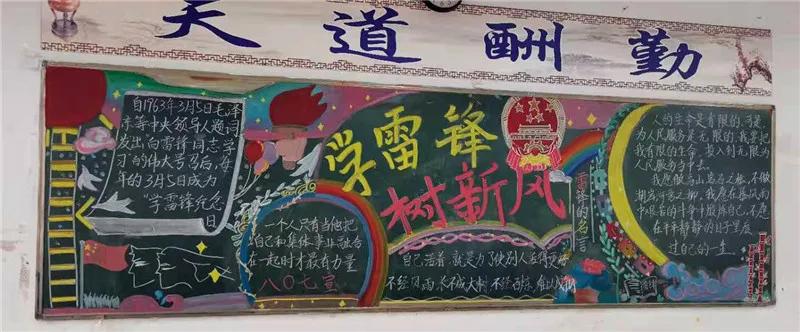 天道酬勤
自1963年3月5日毛泽
东等中央领导人题词
发出向雷锋同志学
习的伟大号召后,每
年的3月5日成为
"学雷锋纪念
日
学雷锋
树新风
一个人只有当他把
自己和集体事业融合
在一起时才最有力量
八〇七宣
自己活着,就是为了使别人
不经风雨,长不成大树,不经百炼,
雷锋的名言
人的生命是有限的,可是
为人民服务是无限的,我要把
我有限的生命,投入到无限为
人民服务当中去。
我愿做高山岩石之松,不做
湖岸河旁之柳,我愿在暴风雨
中艰苦的斗争中锻炼自己,不愿
在平平静静的日子里度
过自己的一生。